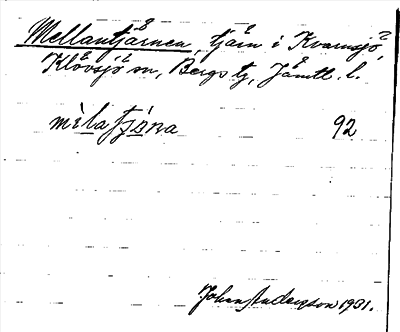 Mellantjärnen, tjärn i Kvarnsjö,
Klövsjö sn, Bergs tg, Jämtl. l.
mìlatjǿna 92
Johan Anderzson 1931.